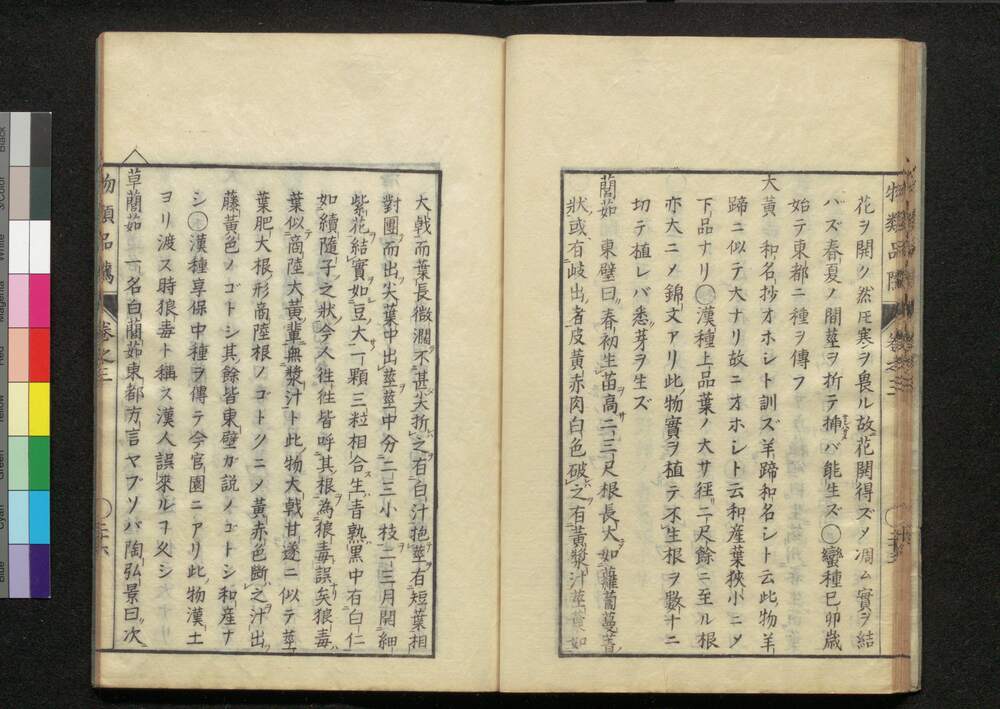 花ヲ開ク然𪜈寒ヲ畏ル故花開得ズメ凋ム實ヲ結
バズ春夏ノ間莖ヲ折テ挿バ能生ズ〇蠻種巳卯歳
始テ東都ニ種ヲ傳フ
大黄 和名抄オホシト訓ズ羊蹄和名シト云此物羊
蹄ニ似テ大ナリ故ニオホシト云和産葉狹小ニメ
下品ナリ〇漢種上品葉ノ大サ徑一二尺餘ニ至ル根
亦大ニメ錦文アリ此物實ヲ植テ不生根ヲ數十ニ
切テ植レバ悉芽ヲ生ズ
藺茹 東壁曰春初生苗高二三尺根長大如蘿蔔蔓菁
狀或有岐出者皮黄赤肉白色破之有黄漿汁莖葉如
物類品隲 卷之三
大戟而葉長微濶不甚尖折之有白汁抱莖有短葉相
對團而出尖葉中出莖莖中分二三小枝二三月開細
紫花結實如豆大一顆三粒相合生青熟黒中有白仁
如續隨子之狀今人徃徃皆呼其根為狼毒誤矣狼毒
葉似商陸大黄輩無漿汁ト此物大戟甘遂ニ似テ莖
葉肥大根形商陸根ノゴトクニメ黄赤色斷之汁出
藤黄色ノゴトシ其餘皆東壁カ説ノゴトシ和産ナ
シ〇漢種享保中種ヲ傳テ今官園ニアリ此物漢土
ヨリ渡ス時狼毒ト稱ス漢人誤來ルヿ久シ
草藺茹 一名白藺茹東都方言ヤブソバ陶弘景曰次
物類品隲 卷之三
Black
3/Color
White
Magenta
Red
Yellow
Green
Cyan
Blue